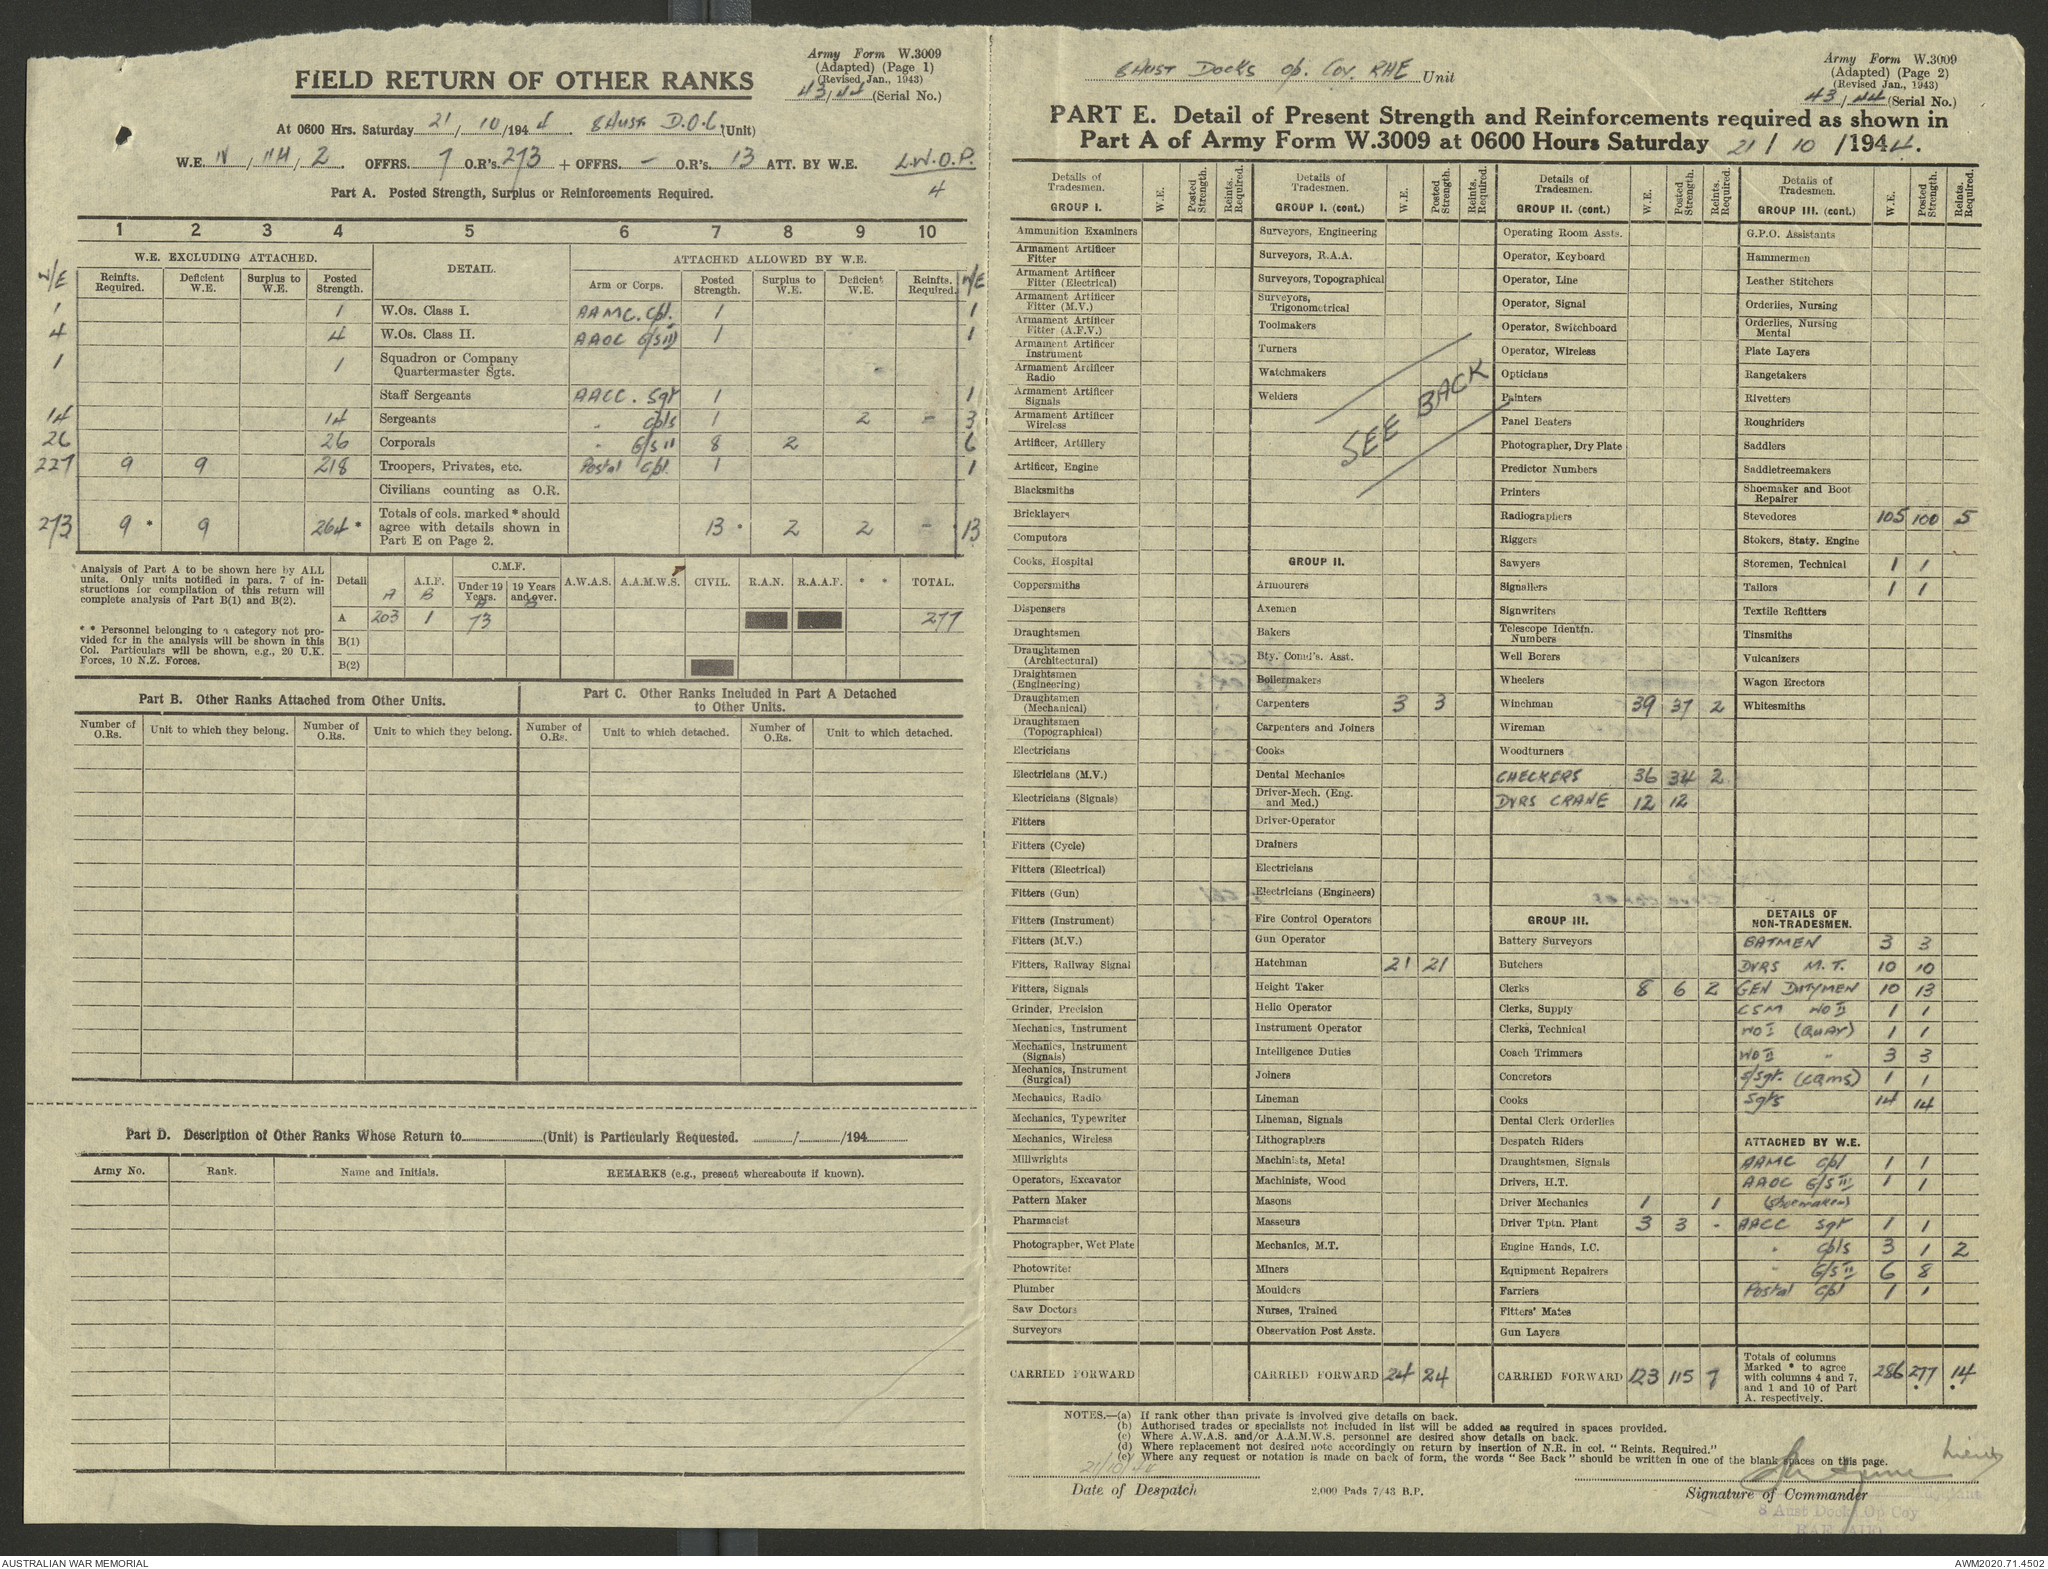 Army Form W.3009
(Adapted) (Page 1)
(Revised Jan., 1943)
43/44 (Serial No.)
FIELD RETURN OF OTHER RANKS
At 0600 Hrs. Saturday 21/10/1944. 8 Aust D.O.C (Unit)
W.E. IV/114/2. OFFRS. 7 O.R's. 273 + OFFRS. – O.R's. 13 ATT. BY W.E. L.W.O.P.
4
Part A. Posted Strength, Surplus or Reinforcements Required.
1 2 3 4 5 6 7 8 9 10
W.E. EXCLUDING ATTACHED. DETAIL. ATTACHED ALLOWED BY W.E.
W/E Reinfts. Required. Deficient W.E. Surplus to W.E. Posted Strength. Arm or Corps. Posted Strength. Surplus to W.E. Deficient W.E. Reinfts. Required. W/E
1 1 W.Os. Class I. AAMC. Cpl. 1 1
4 4 W.Os. Class II. AAOC G/S III 1 1
1 1 Squadron or Company Quartermaster Sgts.
Staff Sergeants AACC. Sgt 1 1
14 14 Sergeants " Cpls 1 2 – 3
26 26 Corporals " G/S II 8 2 6
227 9 9 218 Troopers, Privates, etc. Postal Cpl. 1 1
Civilians counting as O.R.
273 9 * 9 264 * Totals of cols. marked * should agree with details shown in Part E on Page 2. 13 * 2 2 – * 13
Analysis of Part A to be shown here by ALL units. Only units notified in para. 7 of instructions for compilation of this return will complete analysis of Part B(1) and B(2).
* * Personnel belonging to a category not provided for in the analysis will be shown in this Col. Particulars will be shown, e.g., 20 U.K. Forces, 10 N.Z. Forces.
Detail A.I.F. C.M.F. Under 19 Years. 19 Years and over. A.W.A.S. A.A.M.W.S. CIVIL. R.A.N. R.A.A.F. * * TOTAL.
A B A B
A 203 1 73 277
B(1)
B(2)
Part B. Other Ranks Attached from Other Units.
Part C. Other Ranks Included in Part A Detached to Other Units.
Number of O.Rs. Unit to which they belong. Number of O.Rs. Unit to which they belong. Number of O.Rs. Unit to which detached. Number of O.Rs. Unit to which detached.
Part D. Description of Other Ranks Whose Return to (Unit) is Particularly Requested. / /194
Army No. Rank. Name and Initials. REMARKS (e.g., present whereabouts if known).
8 Aust Docks Op. Coy. RAE Unit
Army Form W.3009
(Adapted) (Page 2)
(Revised Jan., 1943)
43/44 (Serial No.)
PART E. Detail of Present Strength and Reinforcements required as shown in
Part A of Army Form W.3009 at 0600 Hours Saturday 21/10/1944.
Details of Tradesmen. W.E. Posted Strength. Reints. Required.
GROUP I.
Ammunition Examiners
Armament Artificer Fitter
Armament Artificer Fitter (Electrical)
Armament Artificer Fitter (M.V.)
Armament Artificer Fitter (A.F.V.)
Armament Artificer Instrument
Armament Artificer Radio
Armament Artificer Signals
Armament Artificer Wireless
Artificer, Artillery
Artificer, Engine
Blacksmiths
Bricklayers
Computors
Cooks, Hospital
Coppersmiths
Dispensers
Draughtsmen
Draughtsmen (Architectural)
Draightsmen (Engineering)
Draughtsmen (Mechanical)
Draughtsmen (Topographical)
Electricians
Electricians (M.V.)
Electricians (Signals)
Fitters
Fitters (Cycle)
Fitters (Electrical)
Fitters (Gun)
Fitters (Instrument)
Fitters (M.V.)
Fitters, Railway Signal
Fitters, Signals
Grinder, Precision
Mechanics, Instrument
Mechanics, Instrument (Signals)
Mechanics, Instrument (Surgical)
Mechanics, Radio
Mechanics, Typewriter
Mechanics, Wireless
Millwrights
Operators, Excavator
Pattern Maker
Pharmacist
Photographer, Wet Plate
Photowriter
Plumber
Saw Doctors
Surveyors
CARRIED FORWARD
Details of Tradesmen. W.E. Posted Strength. Reints. Required.
GROUP I. (cont.)
Surveyors, Engineering
Surveyors, R.A.A.
Surveyors, Topographical
Surveyors, Trigonometrical
Toolmakers
Turners
Watchmakers
Welders
SEE BACK
GROUP II.
Armourers
Axemen
Bakers
Bty. Comd's. Asst.
Boilermakers
Carpenters 3 3
Carpenters and Joiners
Cooks
Dental Mechanics
Driver-Mech. (Eng. and Med.)
Driver-Operator
Drainers
Electricians
Electricians (Engineers)
Fire Control Operators
Gun Operator
Hatchman 21 21
Height Taker
Helio Operator
Instrument Operator
Intelligence Duties
Joiners
Lineman
Lineman, Signals
Lithographers
Machinists, Metal
Machinists, Wood
Masons
Masseurs
Mechanics, M.T.
Miners
Moulders
Nurses, Trained
Observation Post Assts.
CARRIED FORWARD 24 24
Details of Tradesmen. W.E. Posted Strength. Reints. Required.
GROUP II. (cont.)
Operating Room Assts.
Operator, Keyboard
Operator, Line
Operator, Signal
Operator, Switchboard
Operator, Wireless
Opticians
Painters
Panel Beaters
Photographer, Dry Plate
Predictor Numbers
Printers
Radiographers
Riggers
Sawyers
Signallers
Signwriters
Telescope Identfn. Numbers
Well Borers
Wheelers
Winchman 39 37 2
Wireman
Woodturners
CHECKERS 36 34 2
DVRS CRANE 12 12
GROUP III.
Battery Surveyors
Butchers
Clerks 8 6 2
Clerks, Supply
Clerks, Technical
Coach Trimmers
Concretors
Cooks
Dental Clerk Orderlies
Despatch Riders
Draughtsmen, Signals
Drivers, H.T.
Driver Mechanics 1 1
Driver Tptn. Plant 3 3 -
Engine Hands, I.C.
Equipment Repairers
Farriers
Fitters' Mates
Gun Layers
CARRIED FORWARD 123 115 7
Details of Tradesmen. W.E. Posted Strength. Reints. Required.
GROUP III. (cont.)
G.P.O. Assistants
Hammermen
Leather Stitchers
Orderlies, Nursing
Orderlies, Nursing Mental
Plate Layers
Rangetakers
Rivetters
Roughriders
Saddlers
Saddletreemakers
Shoemaker and Boot Repairer
Stevedores 105 100 5
Stokers, Staty. Engine
Storemen, Technical 1 1
Tailors 1 1
Textile Refitters
Tinsmiths
Vulcanizers
Wagon Erectors
Whitesmiths
DETAILS OF NON-TRADESMEN.
BATMEN 3 3
DVRS M.T. 10 10
GEN DUTYMEN 10 13
CSM WO II 1 1
WO I (QUAY) 1 1
WO II " 3 3
S/Sgt. (CQMS) 1 1
Sgts 14 14
ATTACHED BY W.E.
AAMC Cpl 1 1
AAOC G/S III 1 1
(Shoemaker)
AACC Sgt 1 1
" Cpls 3 1 2
" G/S II 6 8
Postal Cpl 1 1
Totals of columns Marked * to agree with columns 4 and 7, and 1 and 10 of Part A. respectively. 286 277 14
NOTES.—(a) If rank other than private is involved give details on back.
(b) Authorised trades or specialists not included in list will be added as required in spaces provided.
(c) Where A.W.A.S. and/or A.A.M.W.S. personnel are desired show details on back.
(d) Where replacement not desired note accordingly on return by insertion of N.R. in col. "Reints. Required."
(e) Where any request or notation is made on back of form, the words "See Back" should be written in one of the blank spaces on this page.
21/10/44
Lieut
Date of Despatch 2,000 Pads 7/43 B.P. Signature of Commander
8 Aust Docks Op Coy
RAE (AIF)
AUSTRALIAN WAR MEMORIAL AWM2020.71.4502